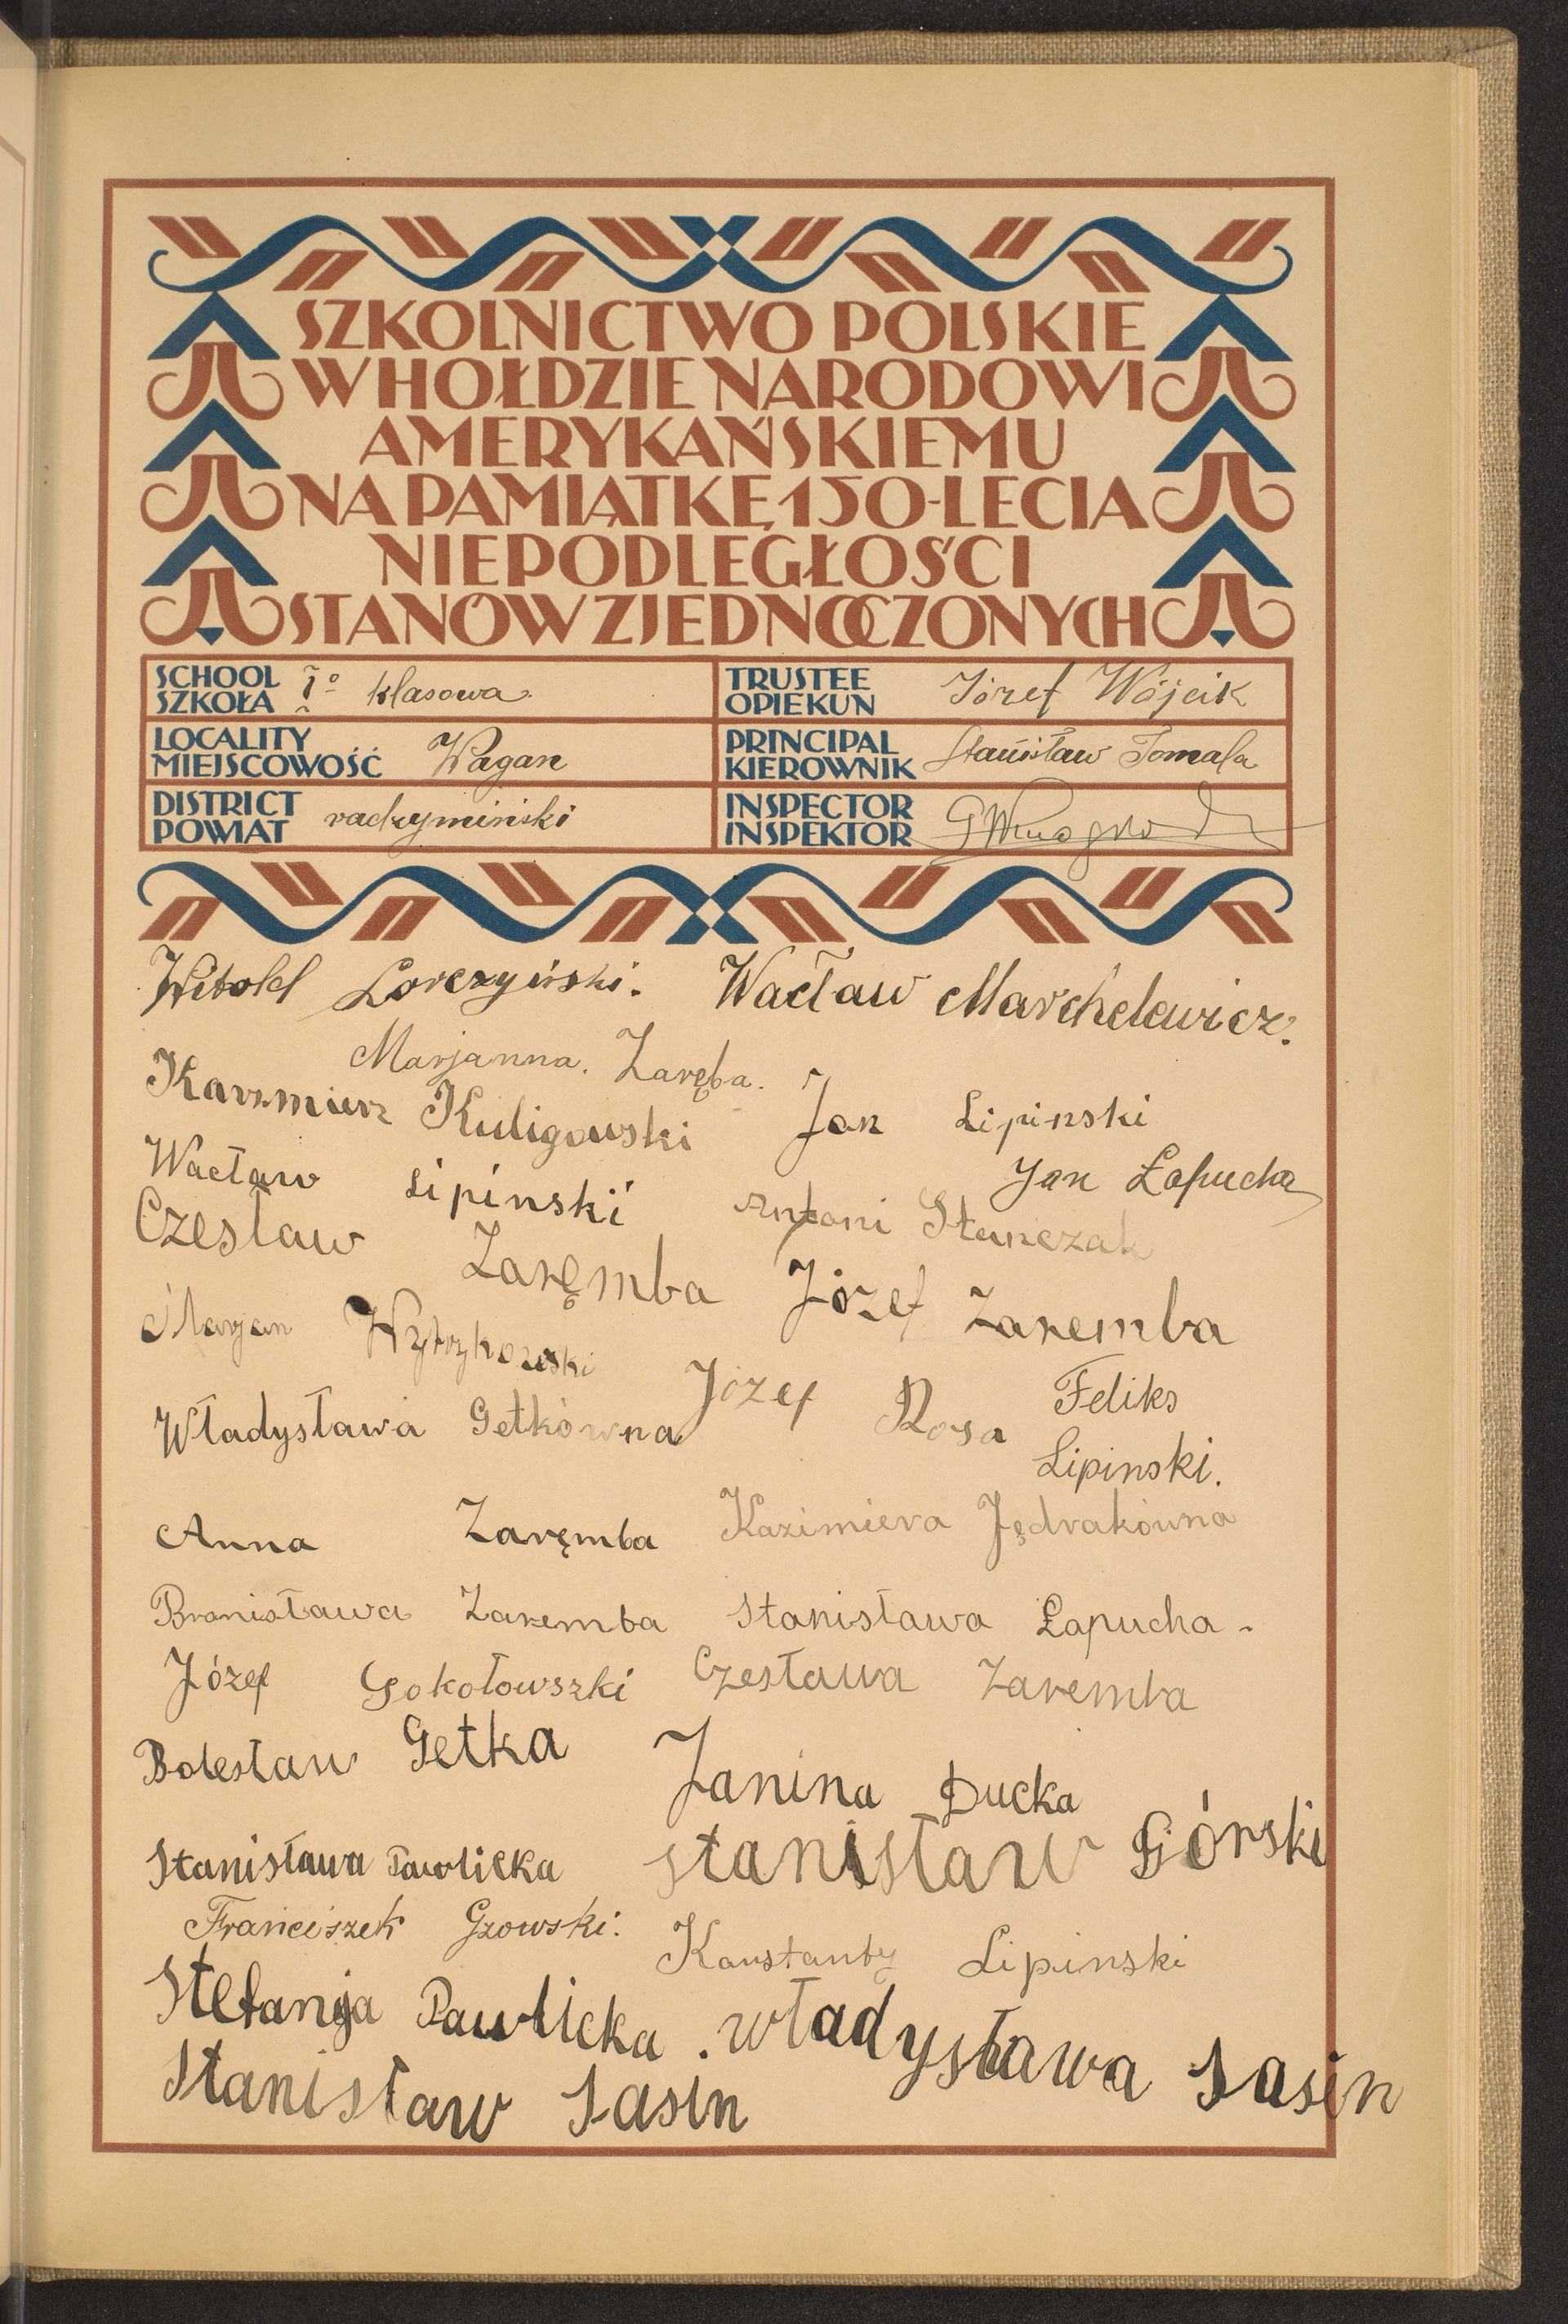 SZKOLNICTWO POLSKIE
W HOŁDZIE NARODOWI
AMERYKAŃSKIEMU
NA PAMIĄTKĘ 150-LECIA
NIEPODLEGŁOŚCI
STANÓW ZJEDNOCZONYCH
SCHOOL
SZKOŁA I° klasowa
TRUSTEE
OPIEKUN Józef Wójcik
LOCALITY
MIEJSCOWOŚĆ Wagan
PRINCIPAL
KIEROWNIK Stanisław Tomala
DISTRICT
POWIAT radzymiński
INSPECTOR
INSPEKTOR
Witold Lorczyński. Wacław Marchelewicz.
Marjanna. Zaręba.
Kazimierz Kuligowski Jan Lipinski
Wacław Lipinski Jan Łapucha
Antoni Stanczak
Czesław Zaręmba Józef Zaremba
Marjan
Władysława Getkówna Józef Rosa Feliks
Lipinski.
Anna Zaręmba Kazimiera Jędrakówna
Bronisława Zaremba Stanisława Łapucha -
Józef Sokołowszki Czesława Zaremba
Bolesław Getka Janina Ducka
Stanisława Pawlicka Stanisław Górski
Franciszek Gzowski. Konstanty Lipinski
Stefanja Pawlicka. władysława Sasin
Stanisław Sasin